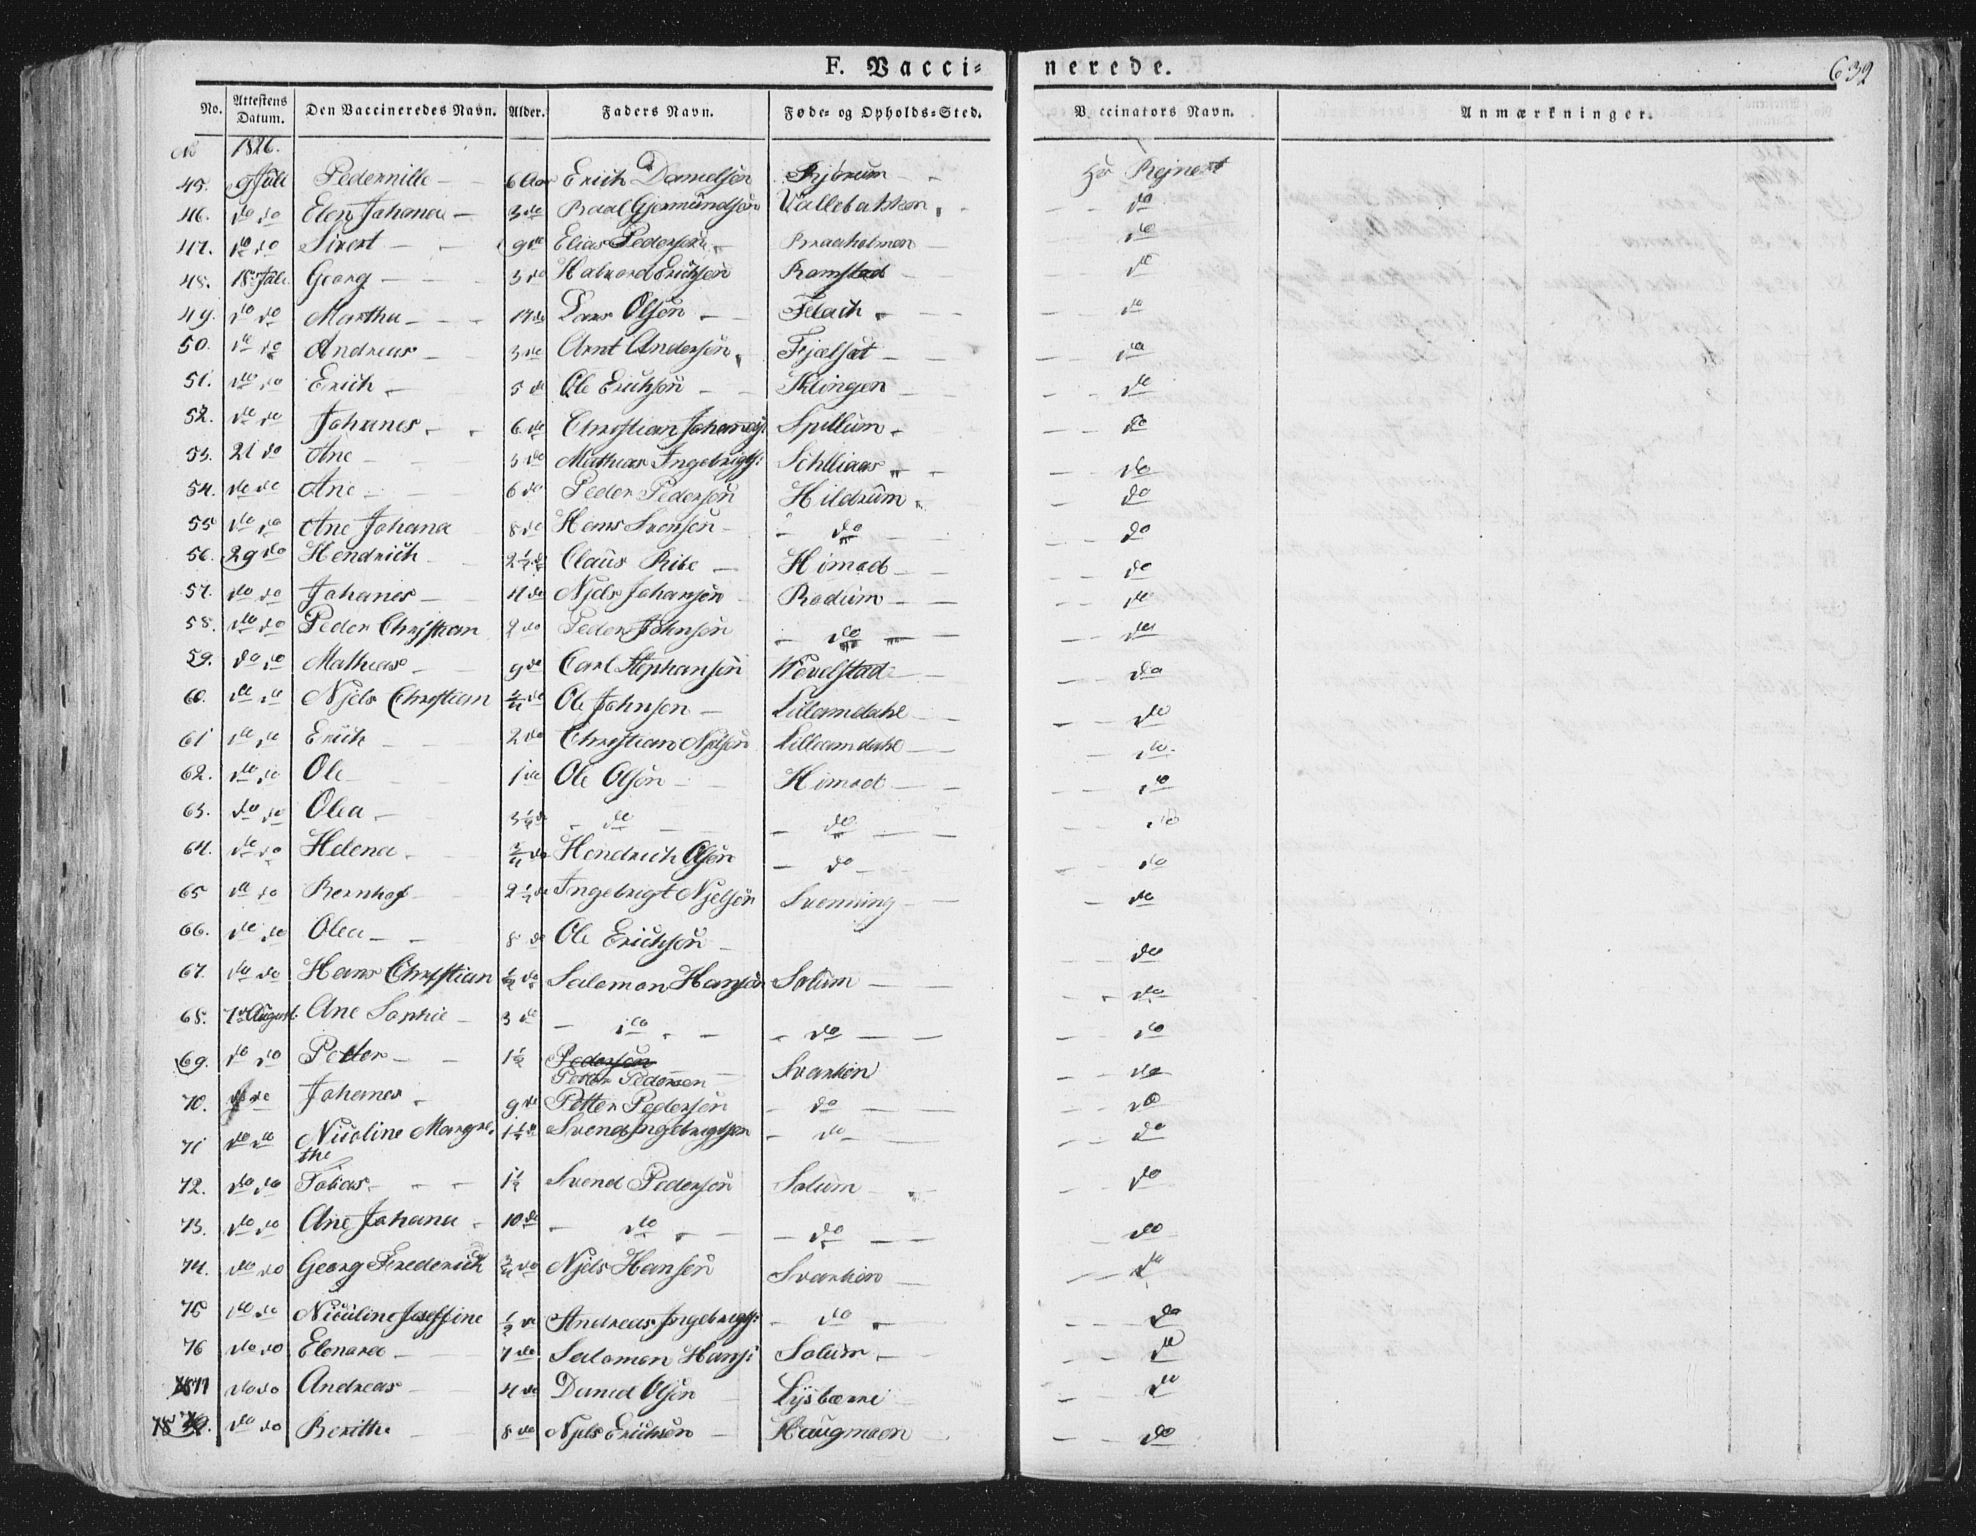 F. Vacci-
nerede.
632
No. Attestens Datum. Den Vaccineredes Navn. Alder. Faders Navn. Føde- og Opholds-Sted. Vaccinators Navn. Anmærkninger.
No 1826.
45. 9 Juli Pedernille 6 Aar Erich Danielsøn Bjørum Hr Rejnert
46. do do Elen Johana 3 do Baal Gjermundsøn Vallebakken do
47. do do Sivert 9 do Elias Pedersøn Braaholmen do
48. 18 Juli Georg 3 do Halvord Erichsøn Ramstad do
49. do do Martha 14 do Lars Olsøn Felach do
50. do do Andreas 3 do Arnt Andersøn Fjælsæt do
51. do do Erich 5 do Ole Erichsøn Klingen do
52. do do Johanes 6 do Christian Johanes: Spillum do
53. 21 do Ane 3 do Mathias Ingebrigts: Sehlliaas do
54. do do Ane 6 do Peder Pedersøn Hildrum do
55 do do Ane Johana 8 do Hans Svensøn do do
56. 29 do Hendrich 2 1/2 do Claus Ribe Himoe do
57. do do Johanes 4 do Njels Johansøn Rodum do
58. do do Peder Christian 2 do Peder Johnsøn do do
59. do do Mathias 9 do Carl Stephansøn Wevelstad do
60. do do Njels Christian 3/4 do Ole Johnsøn Lilleamdahl do
61 do do Erich 2 do Christian Njelsøn Lilleamdahl do
62. do do Ole 1 do Ole Olsøn Himoe do
63. do do Olea 3 1/2 do do do do
64. do do Helena 3/4 do Hendrich Olsøn do do
65 do do Bernhof 2 1/2 do Ingebrigt Njelsøn Svenning do
66. do do Olea 8 do Ole Erichsøn do
67. do do Hans Christian 1/2 do Salomon Hansøn Solum do
68. 7 August Ane Sophie 3 do do do do
69. do do Petter 1 1/2 Pedersøn Petter Pedersen Svartien do
70. do do Johanes 9 do Petter Pedersøn do do
71 do do Nicoline Margrethe 1 1/2 do Svend Ingebrigtsøn do do
72. do do Tobias 1 1/2 Svend Pedersøn Solum do
73. do do Ane Johana 10 do do do do
74. do do Georg Frederich 3/4 do Njels Hansøn Svartien do
75 do do Nicoline Joseffine 1/2 do Andreas Ingebrigts: do do
76 do do Elenora 7 do Salomon Hans: Solum do
77 do do Andreas 4 do Daniel Olsøn Lysbærre do
78 do do Berithe 8 do Njels Erichsøn Haugmoen do